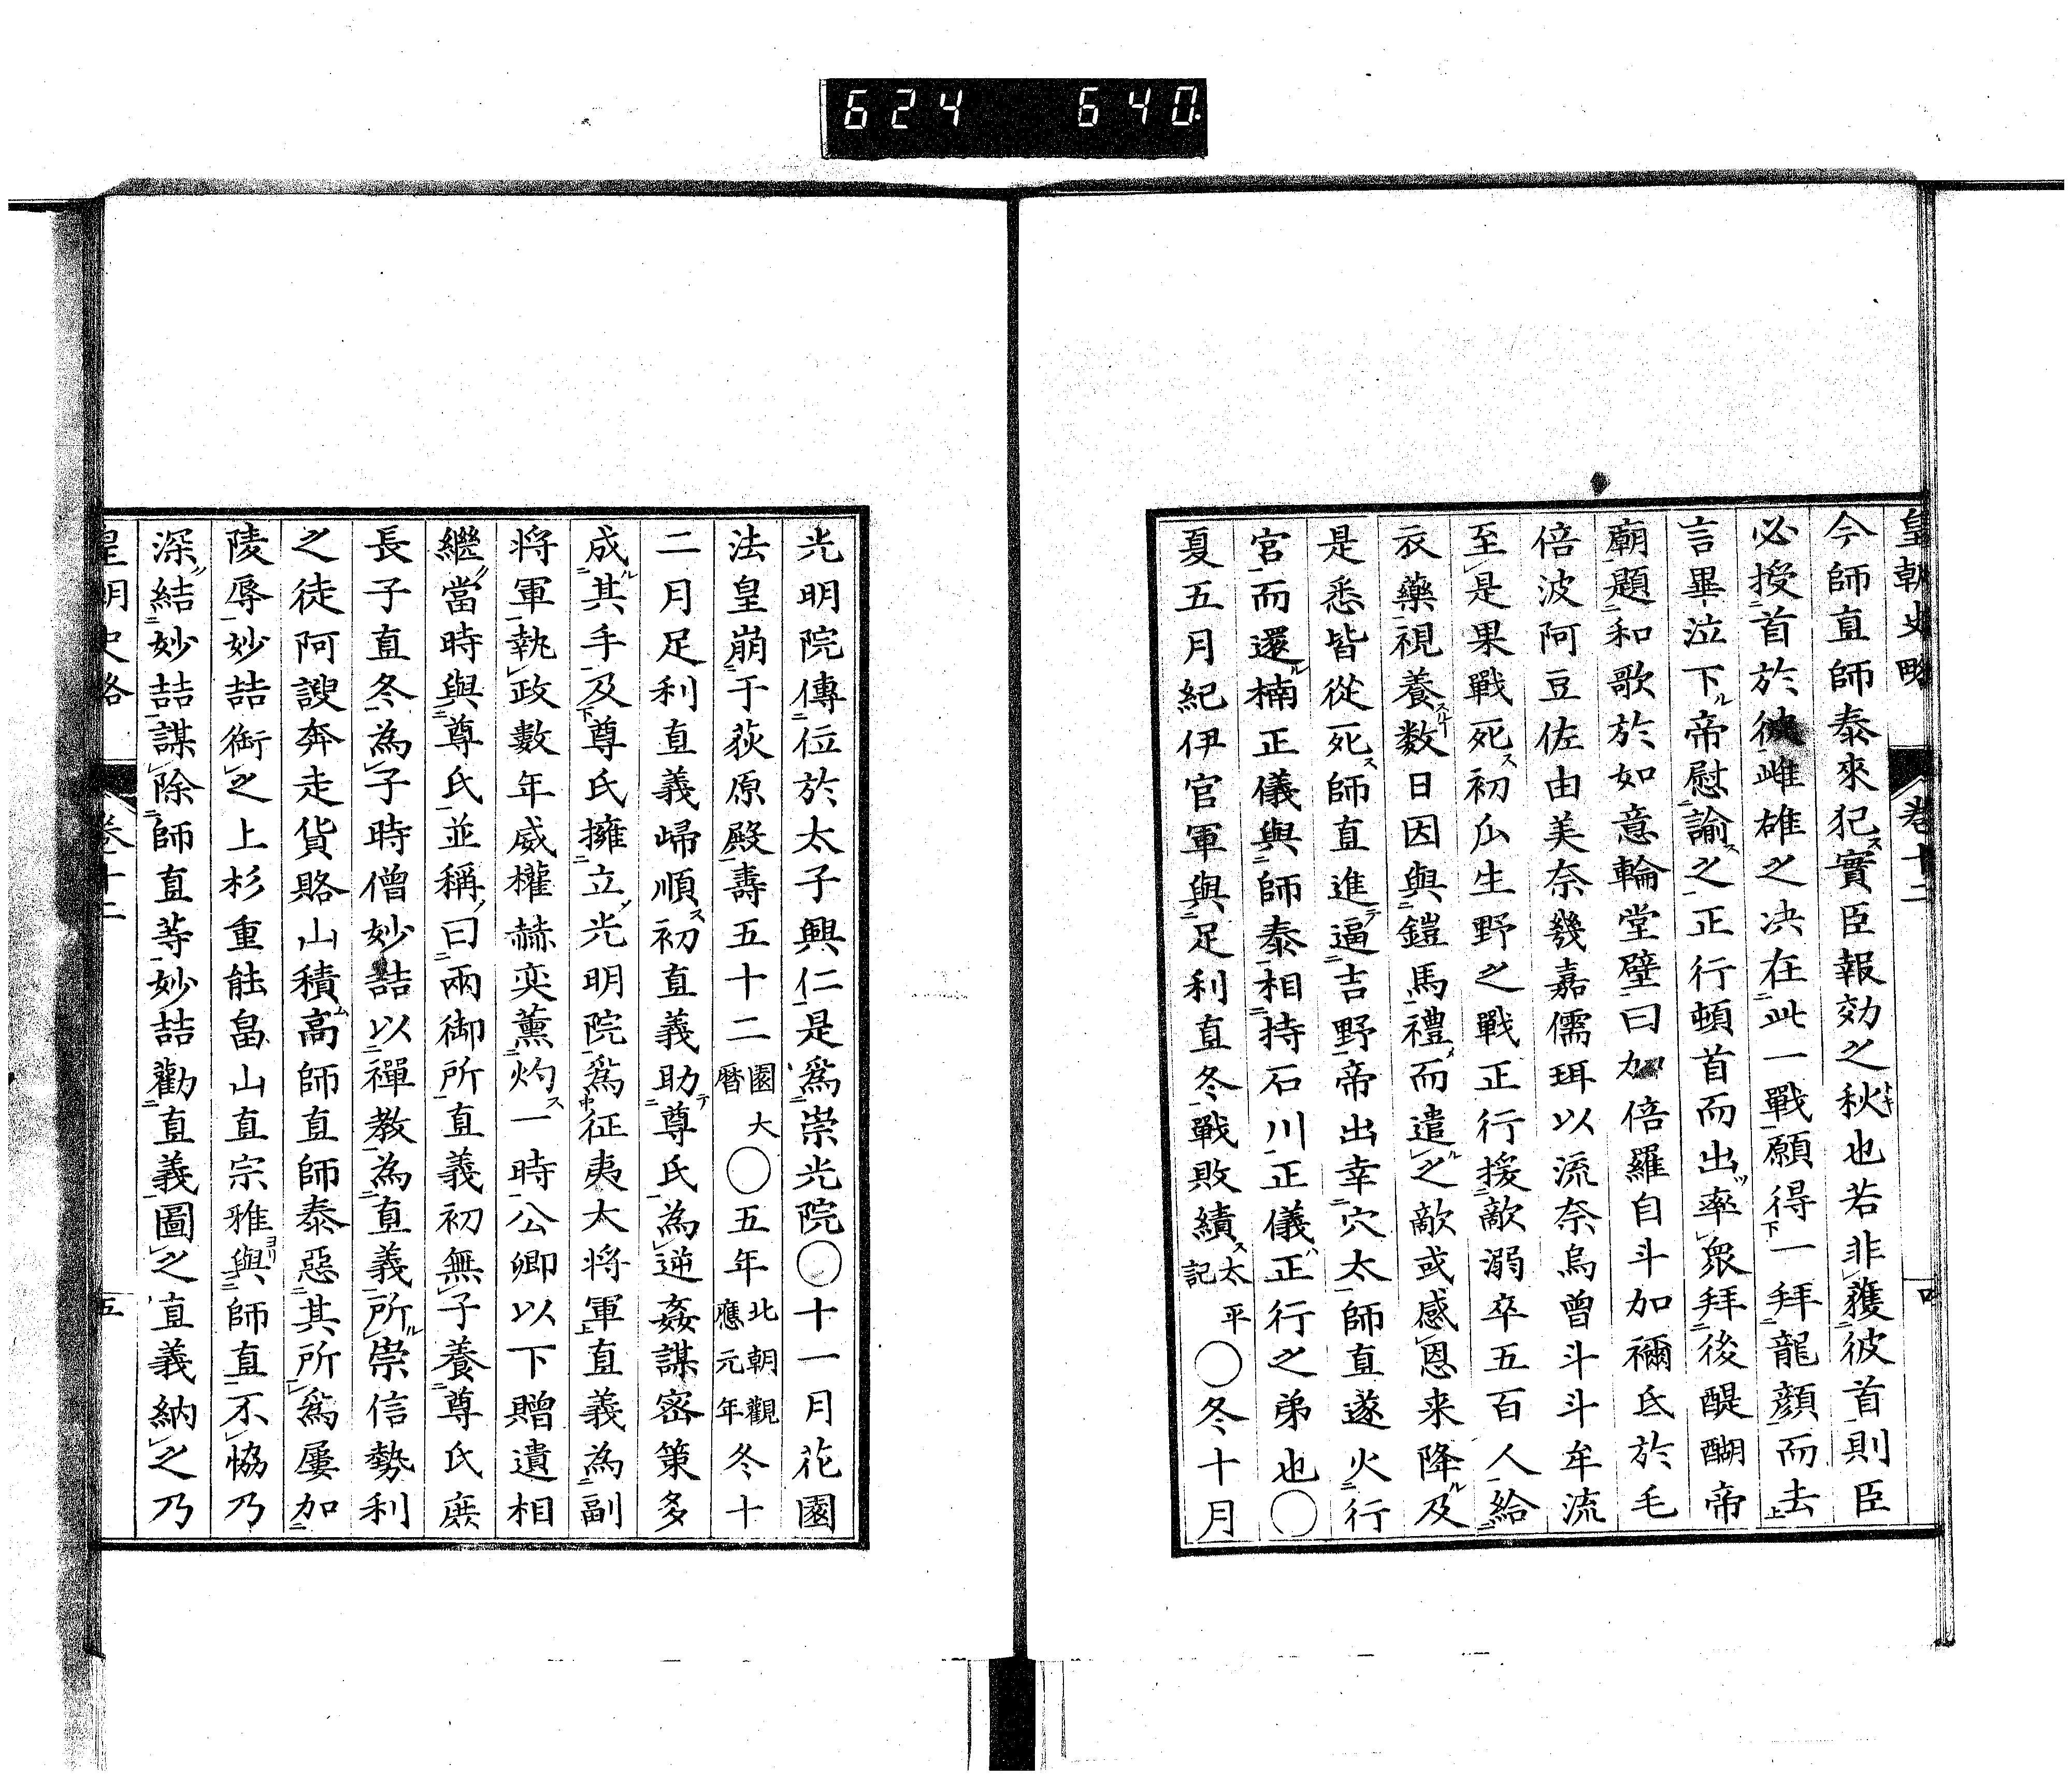 624 640
皇朝史略 卷十二 四
今師直師泰來犯實臣報効之秋也若非獲彼首則臣
必授首於彼雌雄之决在此一戰願得一拜龍顔而去
言畢泣下帝慰諭之正行頓首而出率衆拜後醍醐帝
廟題和歌於如意輪堂壁曰加倍羅自斗加禰氐於毛
倍波阿豆佐由美奈幾嘉儒珥以流奈烏曾斗斗牟流
至是果戰死初瓜生野之戰正行援敵溺卒五百人給
衣藥視養数日因與鎧馬禮而遣之敵或感恩来降及
是悉皆從死師直進逼吉野帝出幸穴太師直遂火行
官而還楠正儀與師泰相持石川正儀正行之弟也〇
夏五月紀伊官軍與足利直冬戰敗績太平記〇冬十月
光明院傳位於太子興仁是爲崇光院〇十一月花園
法皇崩于荻原殿壽五十二園大暦〇五年北朝觀應元年冬十
二月足利直義歸順初直義助尊氏為逆姦謀密策多
成其手及尊氏擁立光明院爲征夷大将軍直義為副
将軍執政數年威權赫奕薫灼一時公卿以下贈遺相
繼當時與尊氏並稱曰兩御所直義初無子養尊氏庶
長子直冬為子時僧妙喆以禪教為直義所崇信勢利
之徒阿諛奔走貨賂山積高師直師泰惡其所爲屢加
陵辱妙喆銜之上杉重能畠山直宗雅與師直不恊乃
深結妙喆謀除師直等妙喆勸直義圖之直義納之乃
皇朝史略 卷十二 五